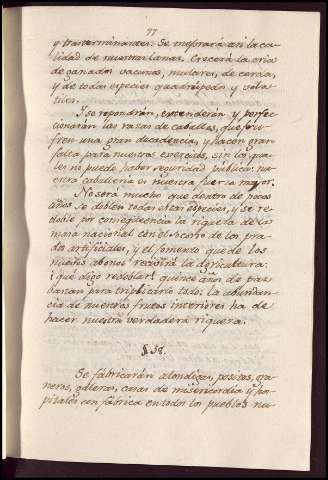 77
y transterminantes. Se mejorará así la ca-
lidad de nuestras lanas. Crecerá la cria
de ganados vacunos, mulares, de cerda,
y de todas especies quadrupedos y vola-
tiles.
Se repondrán, extenderán y perfec-
cionarán las razas de caballos, que su-
fren una gran decadencia, y hacen gran
falta para nuestros exercitos, sin los qua-
les no puede haber seguridad publica:
caballeria es nuestra fuerza mayor.
No será mucho que dentro de pocos
años se doblen todas estas especies, y se re-
doble por consequencia la riqueza de la
nacional con el socorro de los pra-
dos artificiales, y el fomento que de los
nuebos abonos recivirá la agricultura:
¡ que digo redoblar! quince años de paz
bastan para triplicarlo todo: la abundan-
cia de nuestros frutos interiores ha de
hacer nuestra verdadera riqueza.
§ 38.
Se fabricarán alondigas, positos, gra-
neros, galeras, casas de misericordia y hos-
pitales con fabrica en todos los pueblos